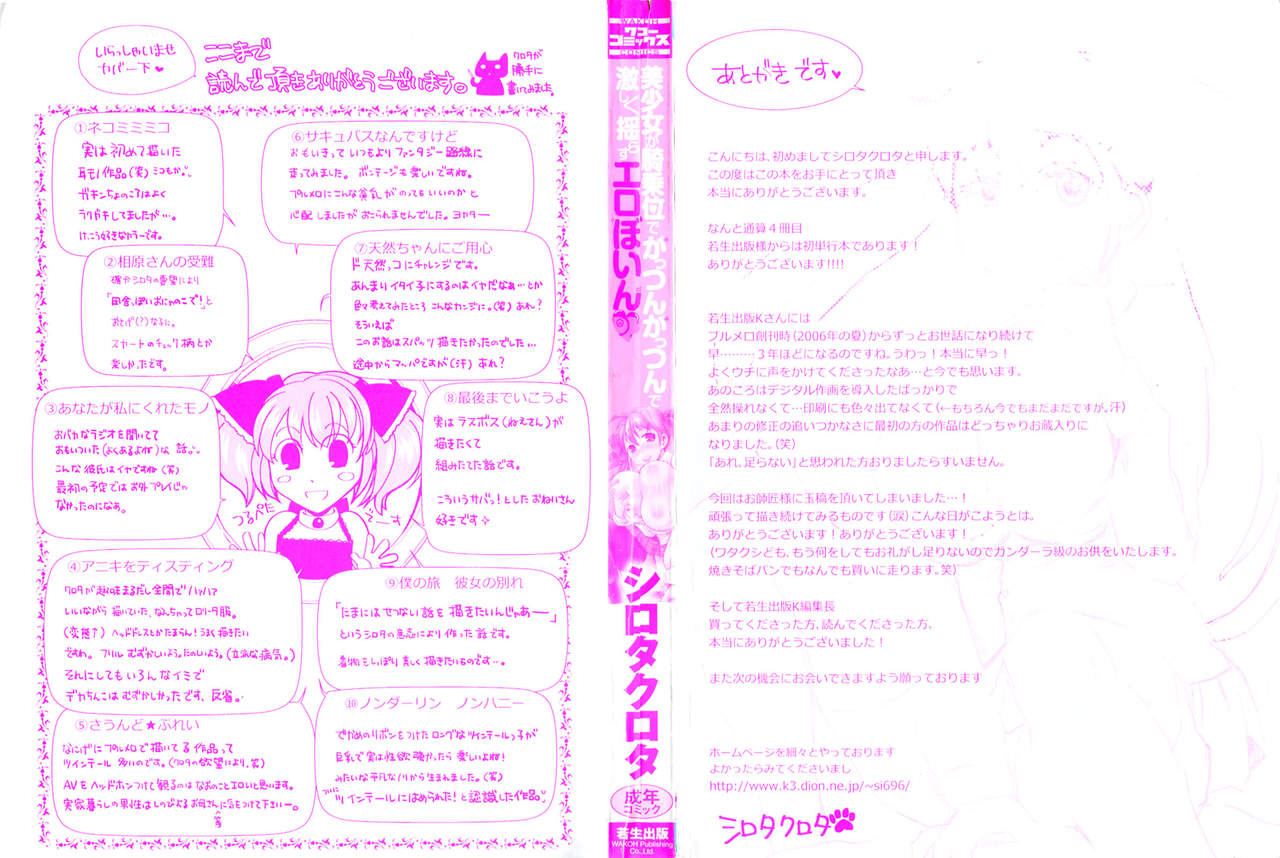 いらっしゃいませ
カバー下♥
ここまで
読んで頂きありがとうございます。
クロタが
勝手に
書いてみました。
①ネコミミミコ
実は初めて描いた
耳モノ作品(笑)ミコもか。
ガキンちょのころはよく
ラクガキしてましたが…。
けっこう好きなカラーです。
②相原さんの受難
確かシロタの要望により
「田舎っぽいおにゃのこで!」と
スカートのチェック柄とか
楽しかったです。
③あなたが私にくれたモノ
おバカなラジオを聞いてて
おもいついた(よくあるよね)な 話。
こんな彼氏はイヤですね(笑)
最初の予定ではお外プレイじゃ
なかったのになぁ。
④アニキをテイスティング
クロタが趣味まるだし全開でハァハァ
いいながら 描いていた、なんちゃってロリータ服。
(変態↑)ヘッドドレスとかたまらん!うまく描きたい
ですねぇ。フリル むずかしいよう。たのしいよう。(立派な病気。)
それにしてもいろんなイミで
デカちんこはむずかしかったです、反省。
⑤さうんど★ぷれい
なにげにプルメロで描いてる作品って
ツインテール 多いのです。(クロタの欲望により、笑)
AVをヘッドホンつけて観るのは なおのことエロいと思います。
実家暮らしの男性はしのびよるお母さんに気をつけて下さいー。
等
⑥サキュバスなんですけど
おもいきって いつもよりファンタジー路線に
走ってみました。 ボンテージも楽しいですね。
プルメロにこんな貧乳がのってもいいのかと
心配しましたがおこられませんでした。ヨカター
⑦天然ちゃんにご用心
ド天然っコにチャレンジです。
あんまりイタイ子にするのはイヤだなぁ…とか
色々考えてみたところ こんなカンジに。(笑)あれ?
そういえば
このお話はスパッツ描きたかったのでした…
途中からマッパですが(汗)あれ?
⑧最後までいこうよ
実はラスボス(ねえさん)が
描きたくて
組みたてた話です。
こういうサバっ!としたおねいさん
好きです
つるぺた
えーす
⑨僕の旅 彼女の別れ
「たまにはせつない話を描きたいんじゃあー」
というシロタの意志により作った話です。
着物もしっぽり美しく描きたいものです…。
⑩ノンダーリン ノンハニー
でかめのリボンをつけたロングなツインテールっ子が
巨乳で実は性欲強かったら楽しいよね!
みたいな平凡なノリから生まれました。(笑)
ツインテールにはめられた!と認識した作品。
WAKOH
ワコー
コミックス
COMICS
美少女が騎乗位でがっつんがっつんで
激しく揺らす エロぼいん
シロタクロタ
成年
コミック
若生出版
WAKOH Publishing
Co.,Ltd.
あとがきです♥
こんにちは、初めましてシロタクロタと申します。
この度はこの本をお手にとって頂き
本当にありがとうございます。
なんと通算4冊目
若生出版様からは初単行本であります!
ありがとうございます!!!!
若生出版Kさんには
プルメロ創刊時(2006年の夏)からずっとお世話になり続けて
早………3年ほどになるのですね。うわっ!本当に早っ!
よくウチに声をかけてくださったなあ…と今でも思います。
あのころはデジタル作画を導入したばっかりで
全然操れなくて…印刷にも色々出てなくて(←もちろん今でもまだまだですが。汗)
あまりの修正の追いつかなさに最初の方の作品はどっちゃりお蔵入りに
なりました。(笑)
「あれ、足らない」と思われた方おりましたらすいません。
今回はお師匠様に玉稿を頂いてしまいました…!
頑張って描き続けてみるものです(涙)こんな日がこようとは。
ありがとうございます!ありがとうございます!
(ワタクシども、もう何をしてもお礼がし足りないのでガンダーラ級のお供をいたします。
焼きそばパンでもなんでも買いに走ります。笑)
そして若生出版K編集長
買ってくださった方、読んでくださった方、
本当にありがとうございました!
また次の機会にお会いできますよう願っております
ホームページを細々とやっております
よかったらみてくださいまし
http://www.k3.dion.ne.jp/~si696/
シロタクロタ